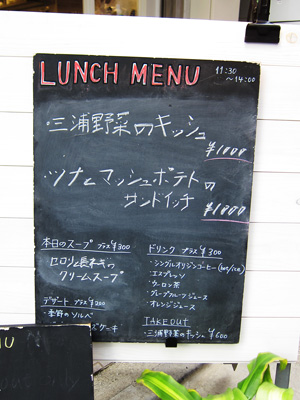 LUNCH MENU
11:30
~14:00
・三浦野菜のキッシュ
¥1000
・ツナとマッシュポテトの
サンドイッチ
¥1000
本日のスープ プラス¥300
セロリと長ネギの
クリームスープ
デザート プラス¥200
・季節のソルベ
ケーキ
ドリンク プラス¥300
・シングルオリジンコーヒー
・エスプレッソ
・ウーロン茶
・グレープフルーツジュース
・オレンジジュース
TAKEOUT
・三浦野菜のキッシュ ¥600
NU